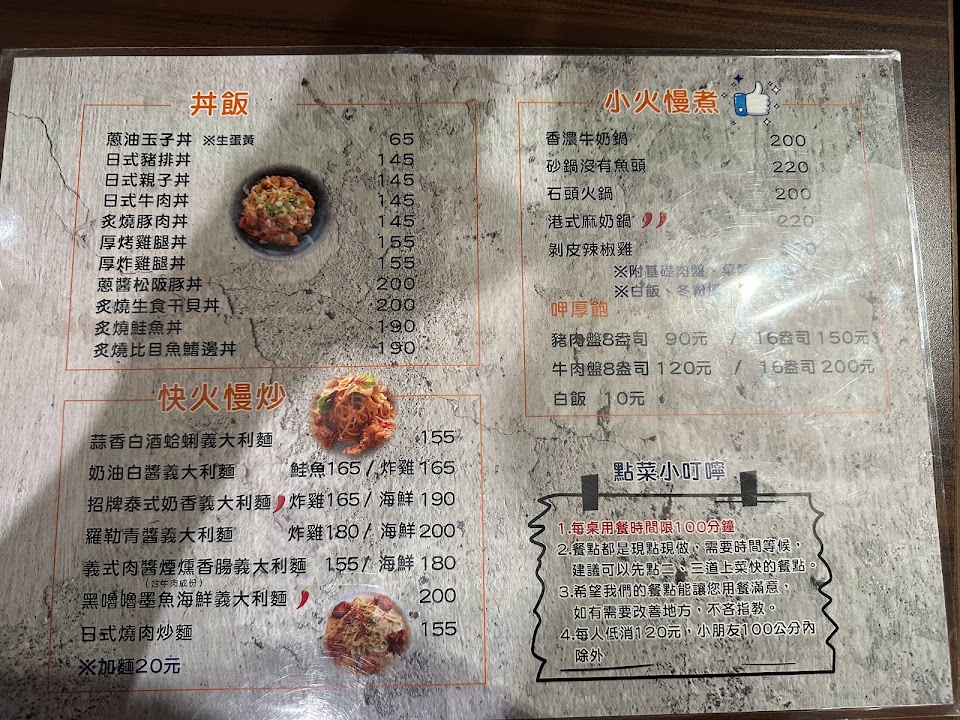 丼飯
蔥油玉子丼 ※生蛋黃 65
日式豬排丼 145
日式親子丼 145
日式牛肉丼 145
炙燒豚肉丼 145
厚烤雞腿丼 155
厚炸雞腿丼 155
蔥醬松阪豚丼 200
炙燒生食干貝丼 200
炙燒鮭魚丼 190
炙燒比目魚鰭邊丼 190
快火慢炒
蒜香白酒蛤蜊義大利麵 155
奶油白醬義大利麵 鮭魚165 / 炸雞165
招牌泰式奶香義大利麵 炸雞165 / 海鮮190
羅勒青醬義大利麵 炸雞180 / 海鮮200
義式肉醬煙燻香腸義大利麵 155 / 海鮮180
(含牛肉成份)
黑嚕嚕墨魚海鮮義大利麵 200
日式燒肉炒麵 155
※加麵20元
小火慢煮
香濃牛奶鍋 200
砂鍋沒有魚頭 220
石頭火鍋 200
港式麻奶鍋 220
剝皮辣椒雞
※附基礎肉盤、菜
※白飯、冬粉
呷厚飽
豬肉盤8盎司 90元 / 16盎司 150元
牛肉盤8盎司 120元 / 16盎司 200元
白飯 10元
點菜小叮嚀
1.每桌用餐時間限100分鐘
2.餐點都是現點現做,需要時間等候,
建議可以先點二、三道上菜快的餐點。
3.希望我們的餐點能讓您用餐滿意,
如有需要改善地方,不吝指教。
4.每人低消120元,小朋友100公分內
除外